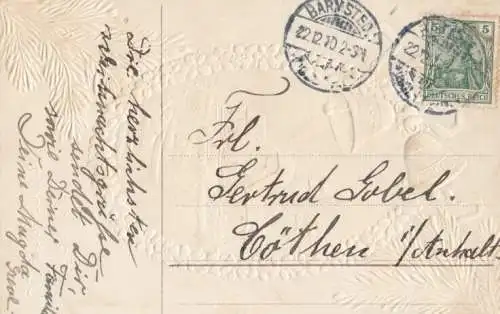 Die herzlichsten
Weihnachtsgrüße
sendet Dir
sowie Deiner Famili
Deine Magda
BARNST
22.12.10.2-3N
22.
5
5
DEUTSCHES REICH
Frl.
Gertrud Gobel.
Cöthen i/Anhalt